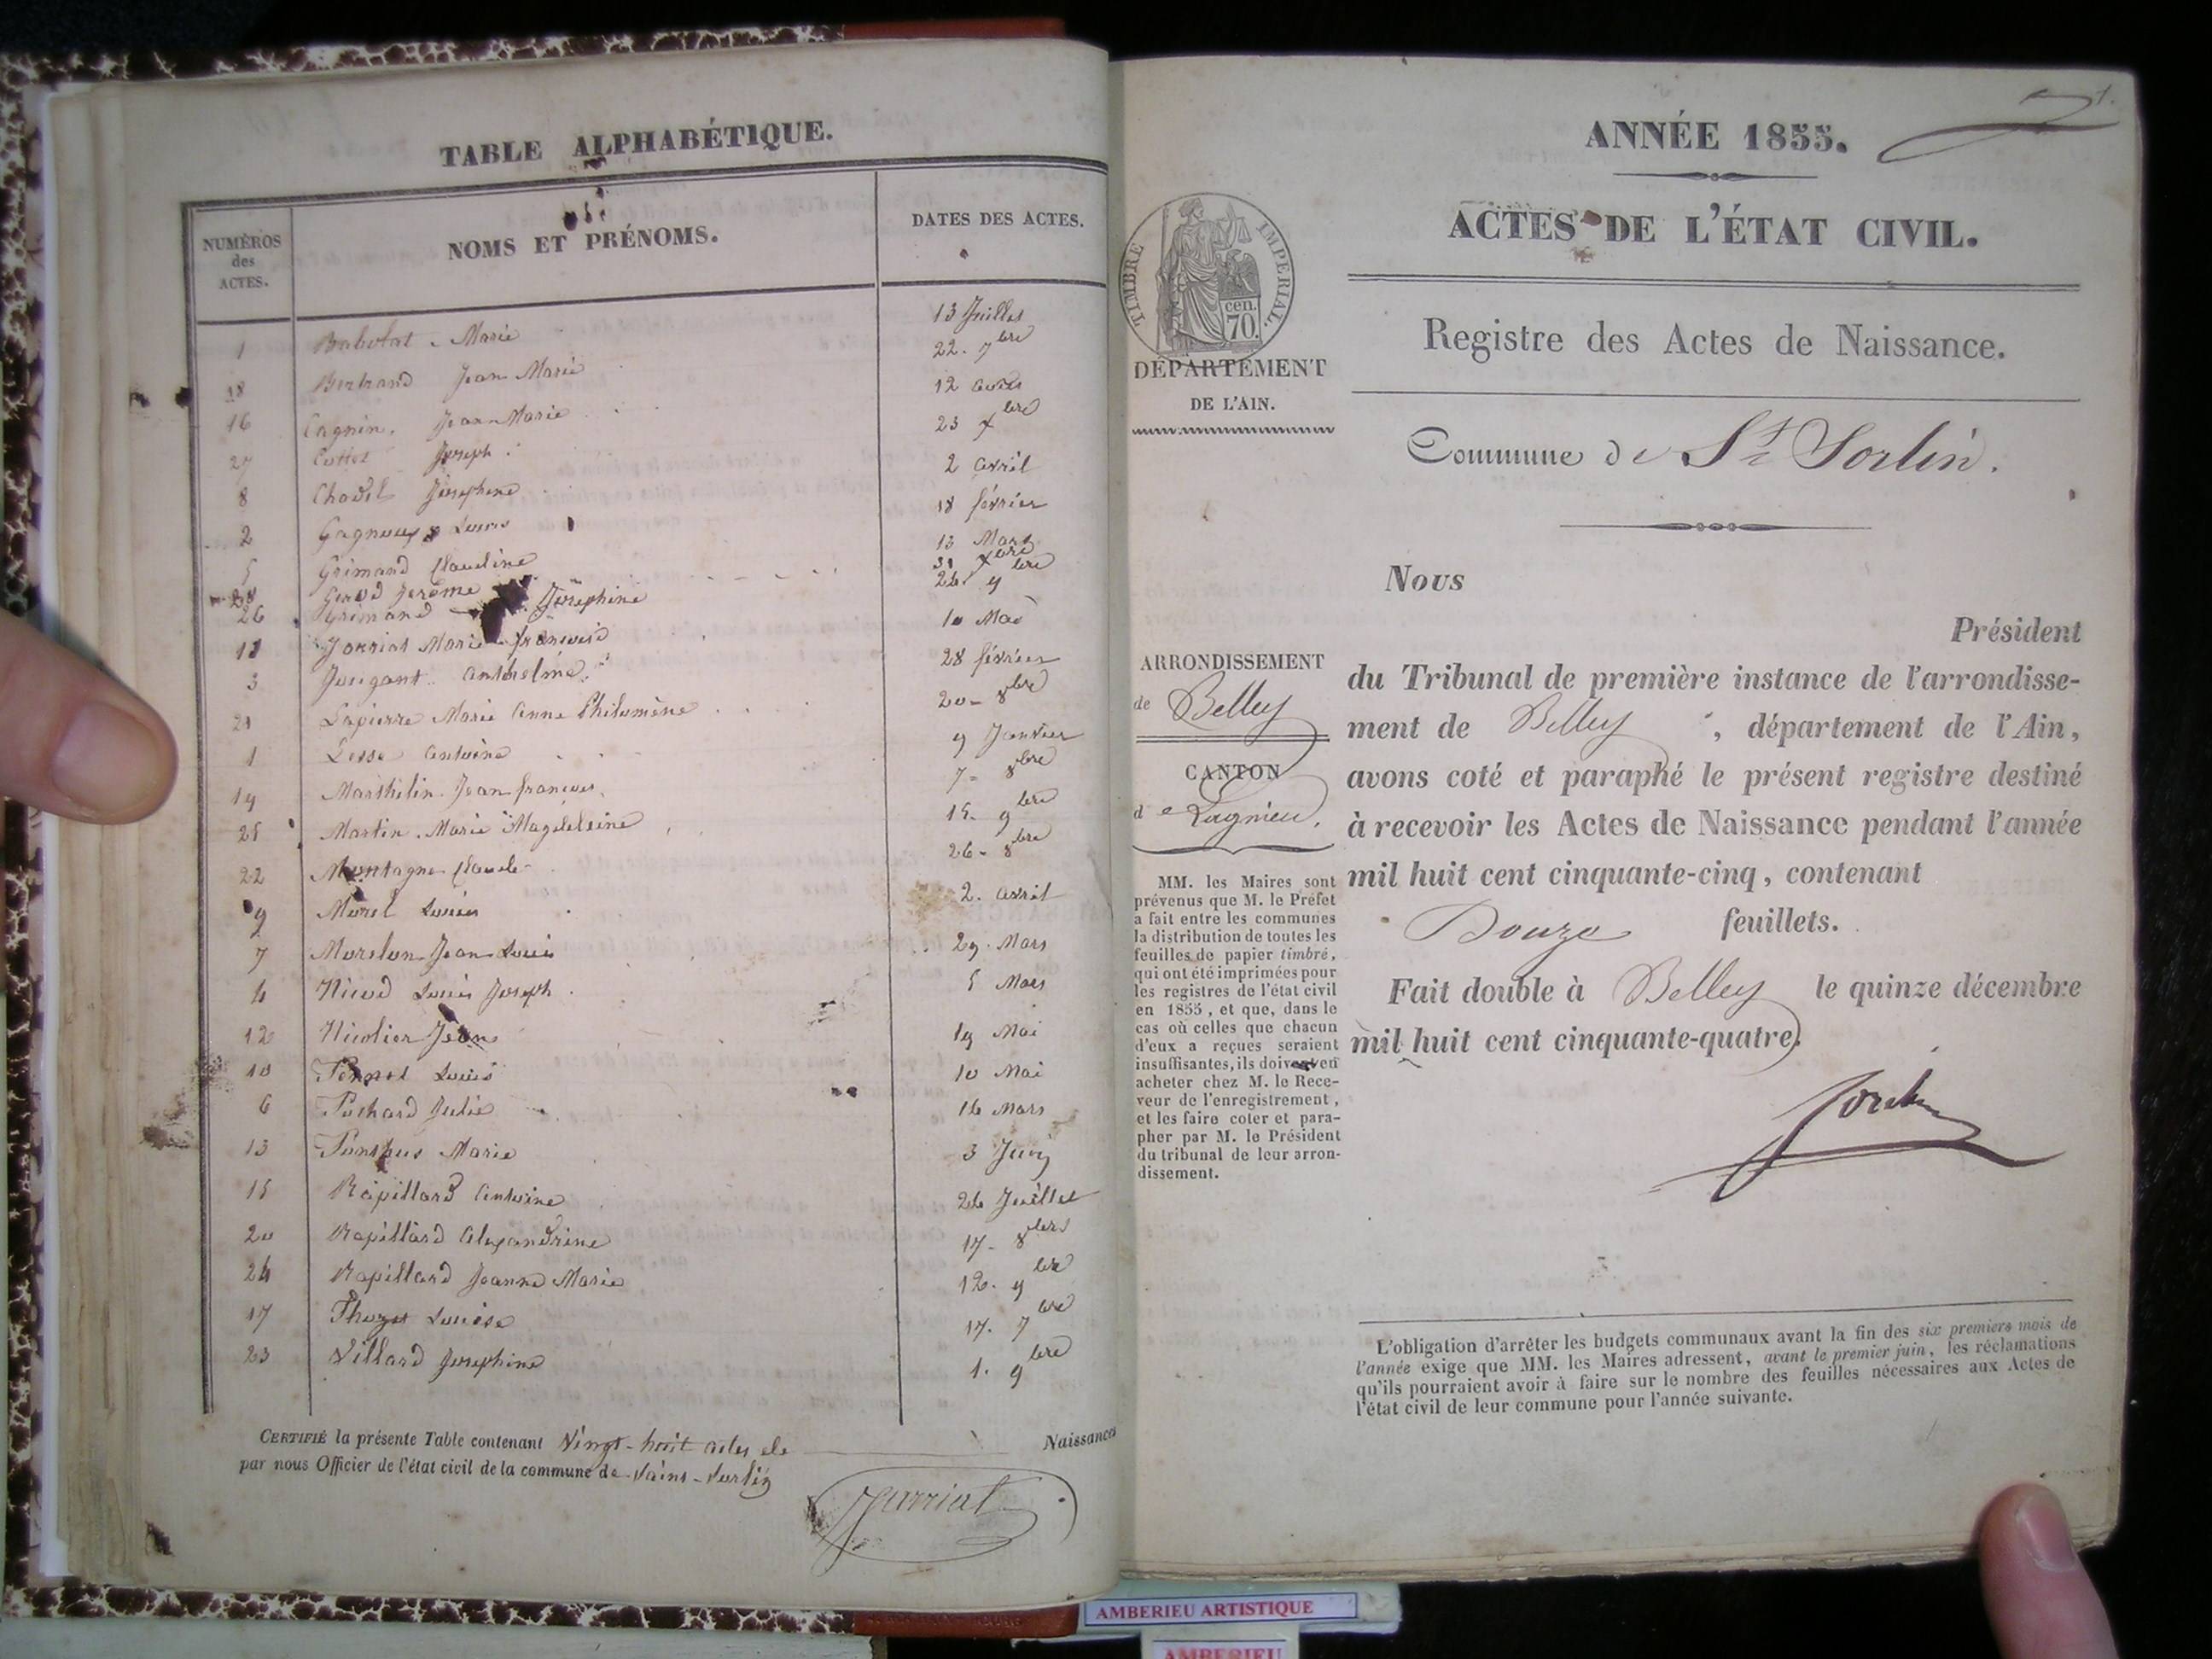 TABLE ALPHABÉTIQUE.
NUMÉROS des ACTES.
NOMS ET PRÉNOMS.
DATES DES ACTES.
1 Babolat. Marie 13 Juillet
18 Bertrand Jean Marie 22. 7bre
16 Cagnin. Jean Marie 12 août
27 Cottet Joseph. 23 Xbre
8 Chadel Josephine 2 avril
2 Louis 18 février
5 Grimand Claudine 13 Mars
28 Girod Jerome 31 Xbre
26 Grimand Josephine 24. 9bre
11 Jarriat Marie françoise 10 Mai
3 Jougant anthelme. 28 février
21 Lapierre Marie anne Philomène 20 - 8bre
1 antoine 9 Janvier
19 Marthelin Jean françois. 7 - 8bre
25 Martin. Marie Magdeleine 15. 9bre
22 Montagne Claude 26 - 8bre
9 Morel Louis 2. avril
7 Morelon Jean Louis 29. Mars
4 Nicod Louis Joseph. 5 Mars
12 Nicolier Jean 19 Mai
10 Pernet Louis 10 Mai
6 Pochard Julie 16 Mars
13 Marie 3 Juin
15 Rapillard antoine 26 Juillet
20 Rapillard alexandrine 17 - 8bre
24 Rapillard Jeanne Marie 12. 9bre
17 Louise 17. 7bre
23 Villard Josephine 1. 9bre
CERTIFIÉ la présente Table contenant Vingt-huit actes de Naissance
par nous Officier de l'état civil de la commune de Saint-Sorlin
Jarriat
ANNÉE 1855.
ACTES DE L'ÉTAT CIVIL.
TIMBRE IMPERIAL.
cen.
70.
DÉPARTEMENT
DE L'AIN.
Registre des Actes de Naissance.
Commune de St Sorlin.
Nous
Président
ARRONDISSEMENT
de Belley
CANTON
de Lagnieu.
du Tribunal de première instance de l'arrondisse-
ment de Belley, département de l'Ain,
avons coté et paraphé le présent registre destiné
à recevoir les Actes de Naissance pendant l'année
mil huit cent cinquante-cinq, contenant
Douze feuillets.
Fait double à Belley le quinze décembre
mil huit cent cinquante-quatre.
MM. les Maires sont
prévenus que M. le Préfet
a fait entre les communes
la distribution de toutes les
feuilles de papier timbré,
qui ont été imprimées pour
les registres de l'état civil
en 1855, et que, dans le
cas où celles que chacun
d'eux a reçues seraient
insuffisantes, ils doivent en
acheter chez M. le Rece-
veur de l'enregistrement,
et les faire coter et para-
pher par M. le Président
du tribunal de leur arron-
dissement.
L'obligation d'arrêter les budgets communaux avant la fin des six premiers mois de
l'année exige que MM. les Maires adressent, avant le premier juin, les réclamations
qu'ils pourraient avoir à faire sur le nombre des feuilles nécessaires aux Actes de
l'état civil de leur commune pour l'année suivante.
AMBERIEU ARTISTIQUE
AMBERIEU